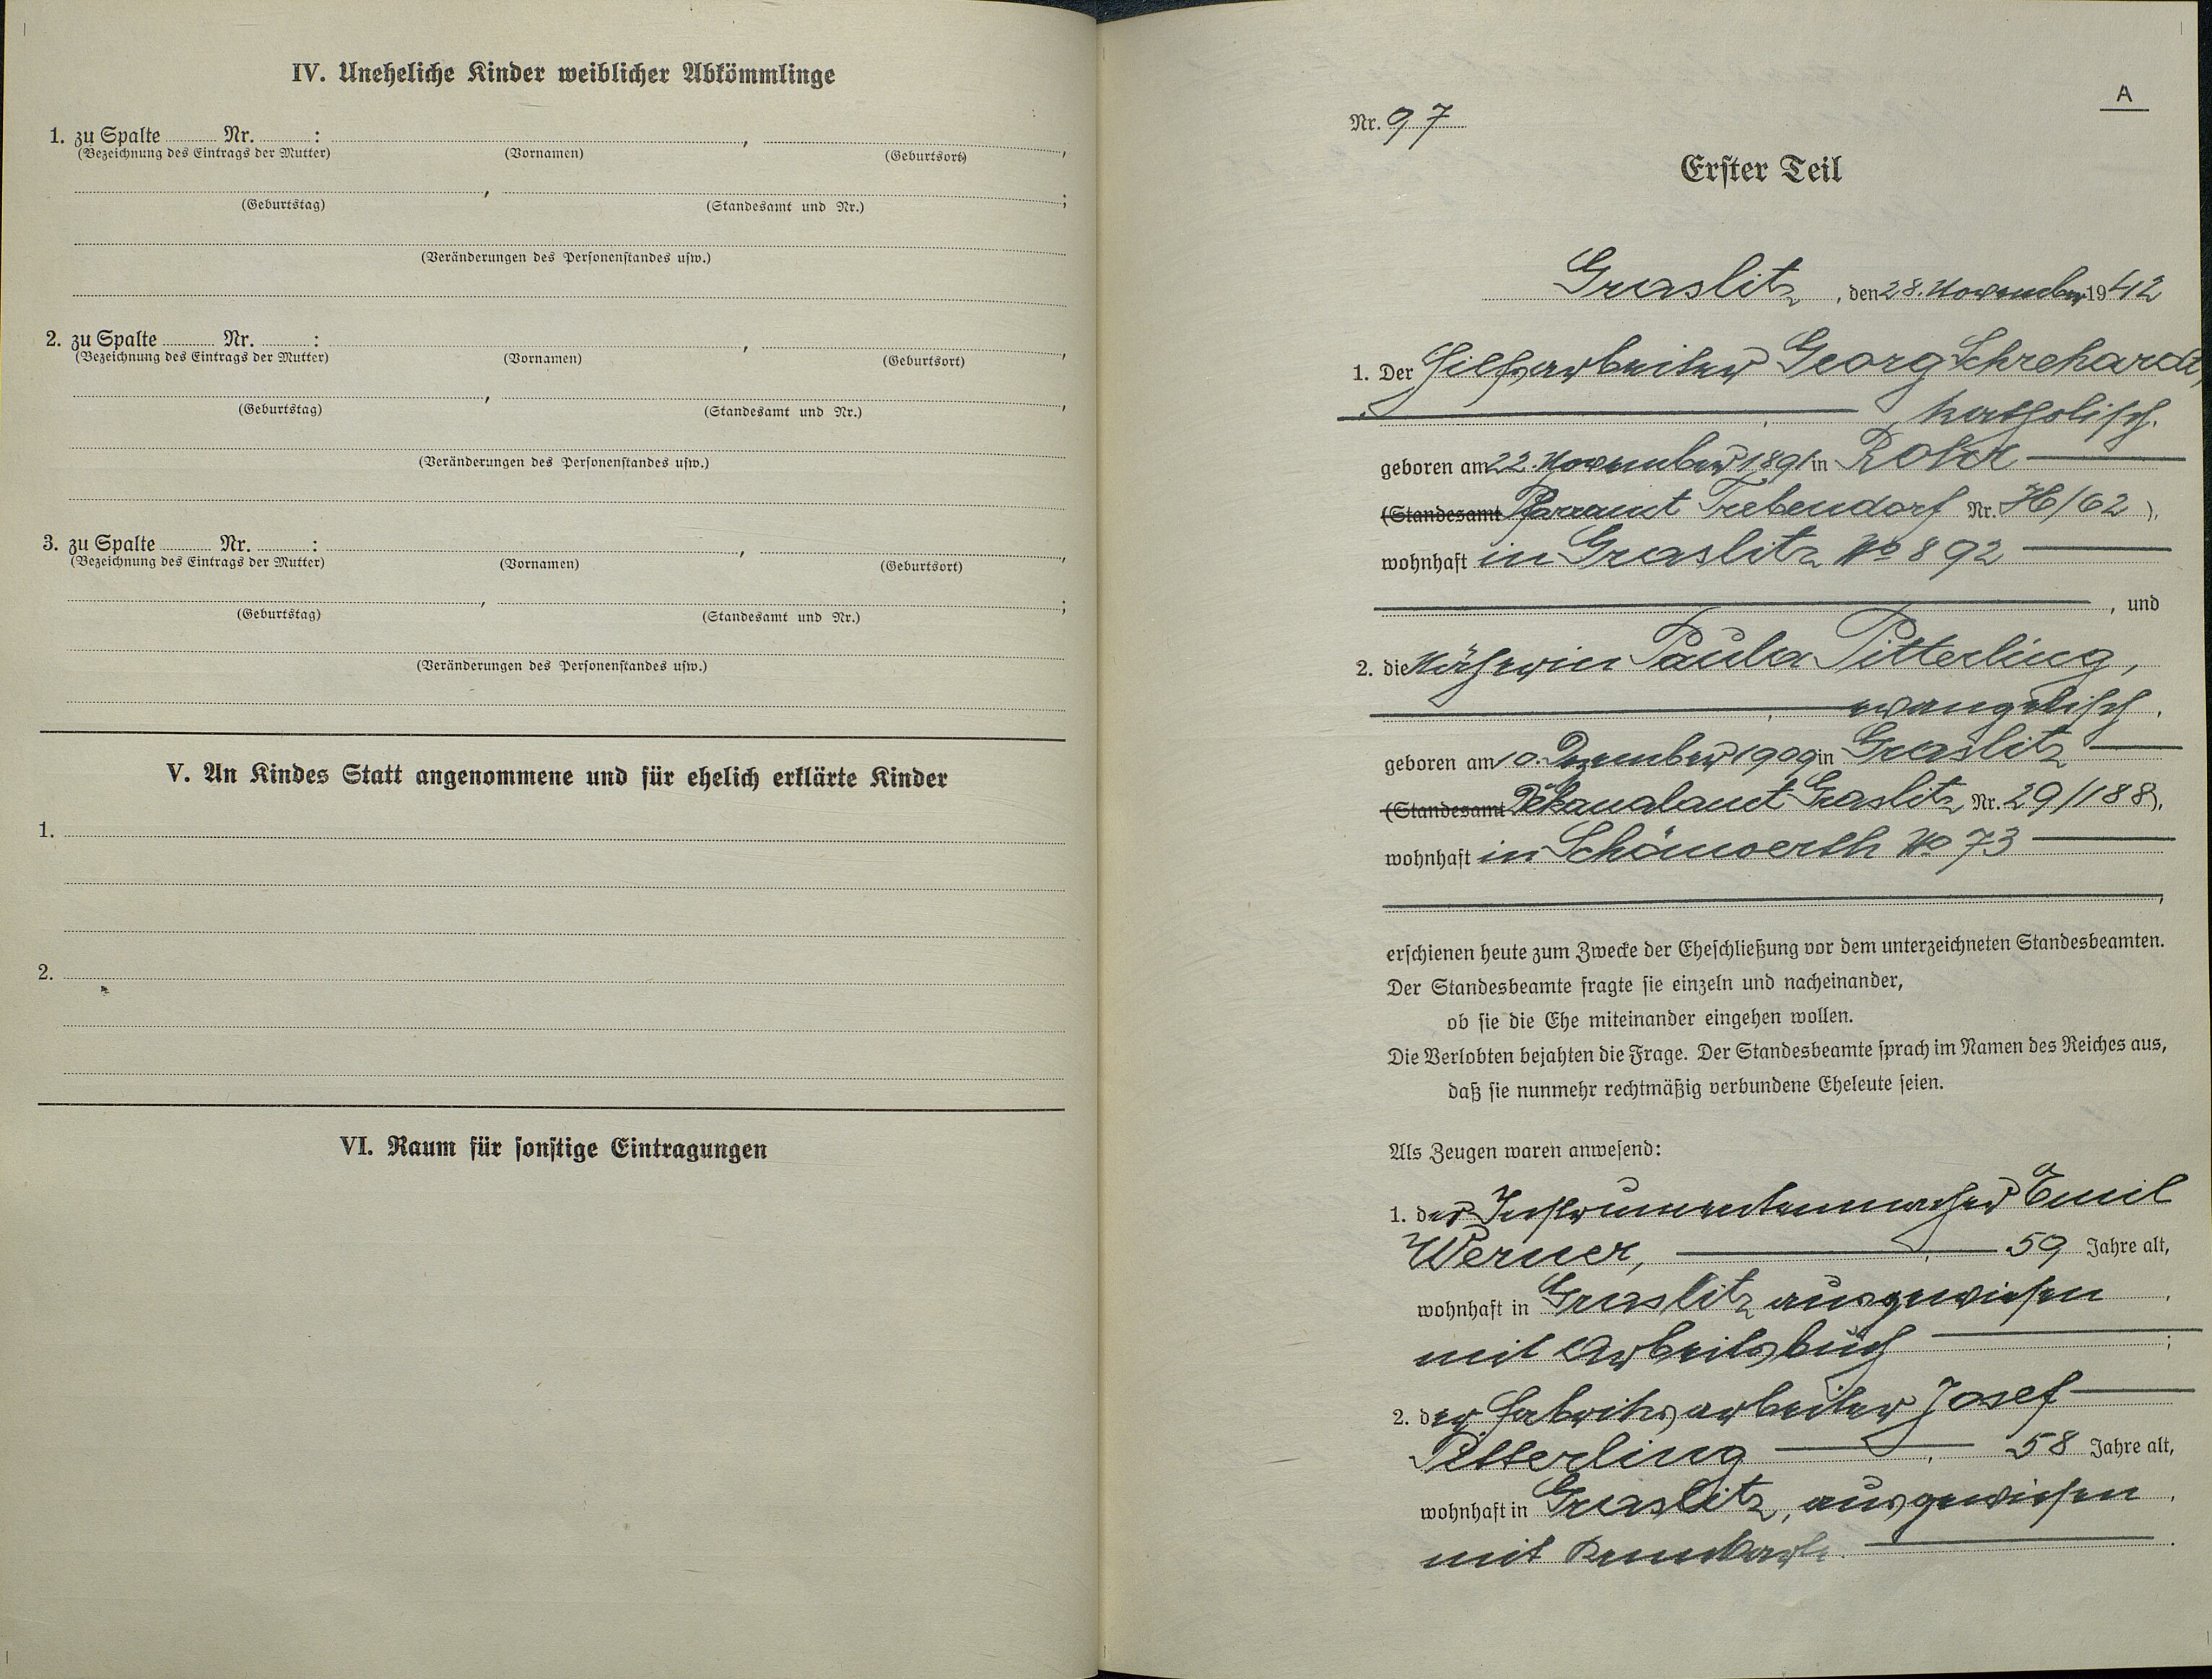 IV. Uneheliche Kinder weiblicher Abkömmlinge
1. zu Spalte Nr. : , ,
(Bezeichnung des Eintrags der Mutter) (Vornamen) (Geburtsort)
, ;
(Geburtstag) (Standesamt und Nr.)
(Veränderungen des Personenstandes usw.)
2. zu Spalte Nr. : , ,
(Bezeichnung des Eintrags der Mutter) (Vornamen) (Geburtsort)
, ;
(Geburtstag) (Standesamt und Nr.)
(Veränderungen des Personenstandes usw.)
3. zu Spalte Nr. : , ,
(Bezeichnung des Eintrags der Mutter) (Vornamen) (Geburtsort)
, ;
(Geburtstag) (Standesamt und Nr.)
(Veränderungen des Personenstandes usw.)
V. An Kindes Statt angenommene und für ehelich erklärte Kinder
1.
2.
VI. Raum für sonstige Eintragungen
A
Nr. 97
Erster Teil
Graslitz, den 28. November 1942
1. Der Hilfsarbeiter Georg Schrehardt,
, katholisch.
geboren am 22. November 1891 in Rohr
(Standesamt Pfarramt Trebendorf Nr. H/62),
wohnhaft in Graslitz No 892
, und
2. die Näherin Paula Pitterling,
, evangelisch.
geboren am 10. Dezember 1909 in Graslitz
(Standesamt Dekanalamt Graslitz Nr. 29/188),
wohnhaft in Schönwerth No 73
,
erschienen heute zum Zwecke der Eheschließung vor dem unterzeichneten Standesbeamten.
Der Standesbeamte fragte sie einzeln und nacheinander,
ob sie die Ehe miteinander eingehen wollen.
Die Verlobten bejahten die Frage. Der Standesbeamte sprach im Namen des Reiches aus,
daß sie nunmehr rechtmäßig verbundene Eheleute seien.
Als Zeugen waren anwesend:
1. der Instrumentenmacher Emil
Werner, , 59 Jahre alt,
wohnhaft in Graslitz ausgewiesen,
mit Arbeitsbuch ;
2. der Fabriksarbeiter Josef
Pitterling , 58 Jahre alt,
wohnhaft in Graslitz, ausgewiesen,
mit Kennkarte.